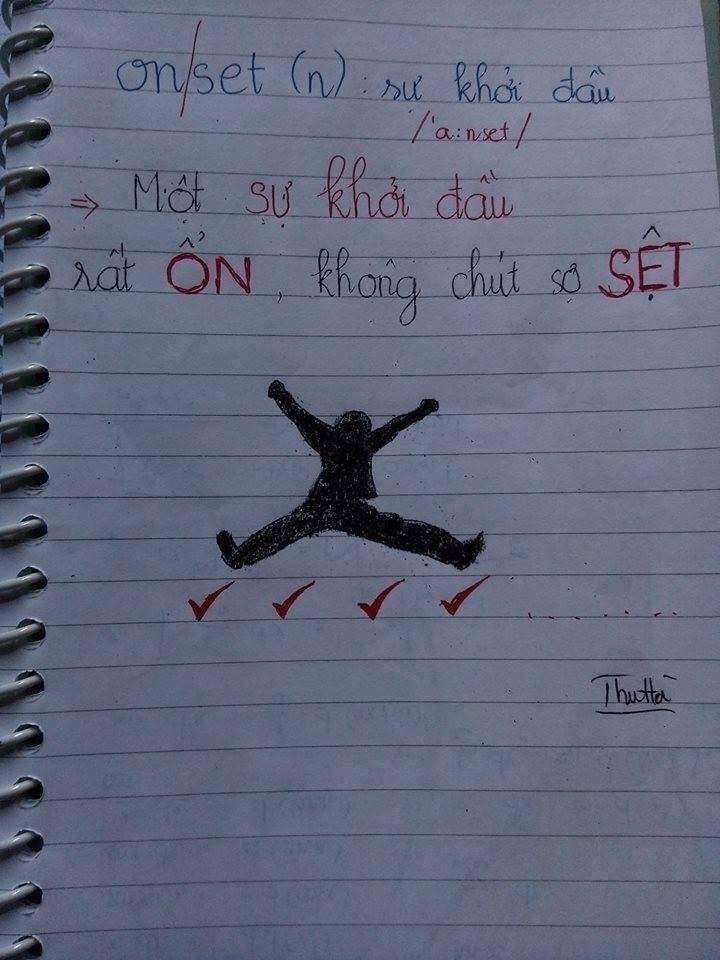 on/set (n): sự khởi đầu
/'a:nset/
⇒ Một sự khởi đầu
rất ỔN, không chút sợ SỆT
✓ ✓ ✓ ✓ ..........
ThuHà